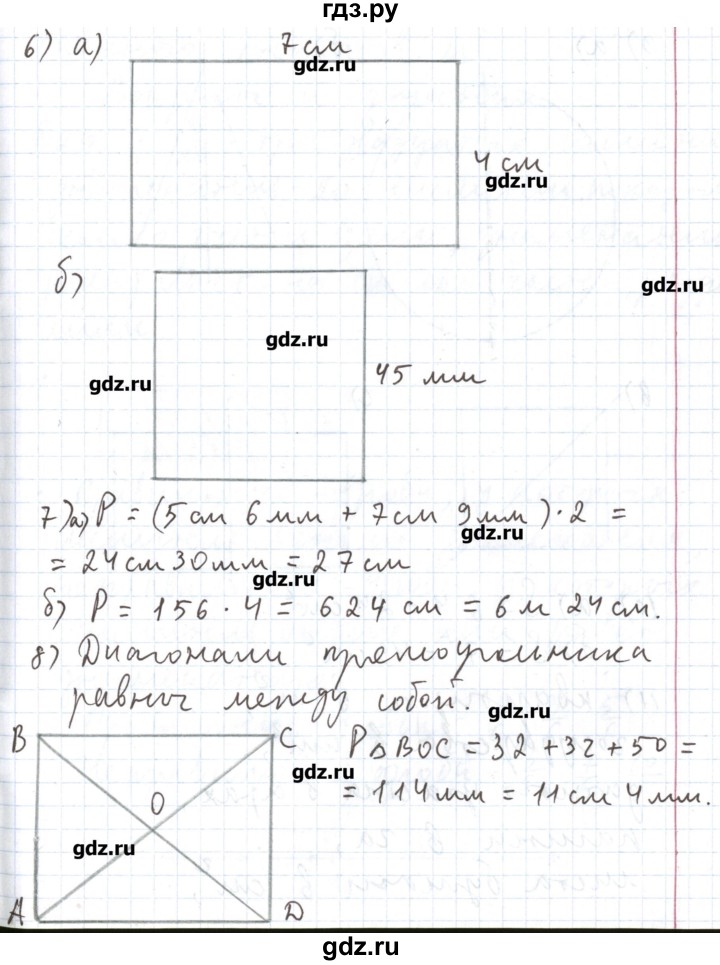 гдз.ру
6) а) 7 см
gdz.ru
4 см
gdz.ru
б)
gdz.ru
gdz.ru
gdz.ru
45 мм
7) а) P = (5 см 6 мм + 7 см 9 мм) · 2 =
gdz.ru
= 24 см 30 мм = 27 см
gdz.ru
б) P = 156 · 4 = 624 см = 6 м 24 см.
8) Диагонали прямоугольника
равны между собой.
gdz.ru
B C P△BOC = 32 + 32 + 50 =
gdz.ru
O = 114 мм = 11 см 4 мм.
gdz.ru
A D
gdz.ru